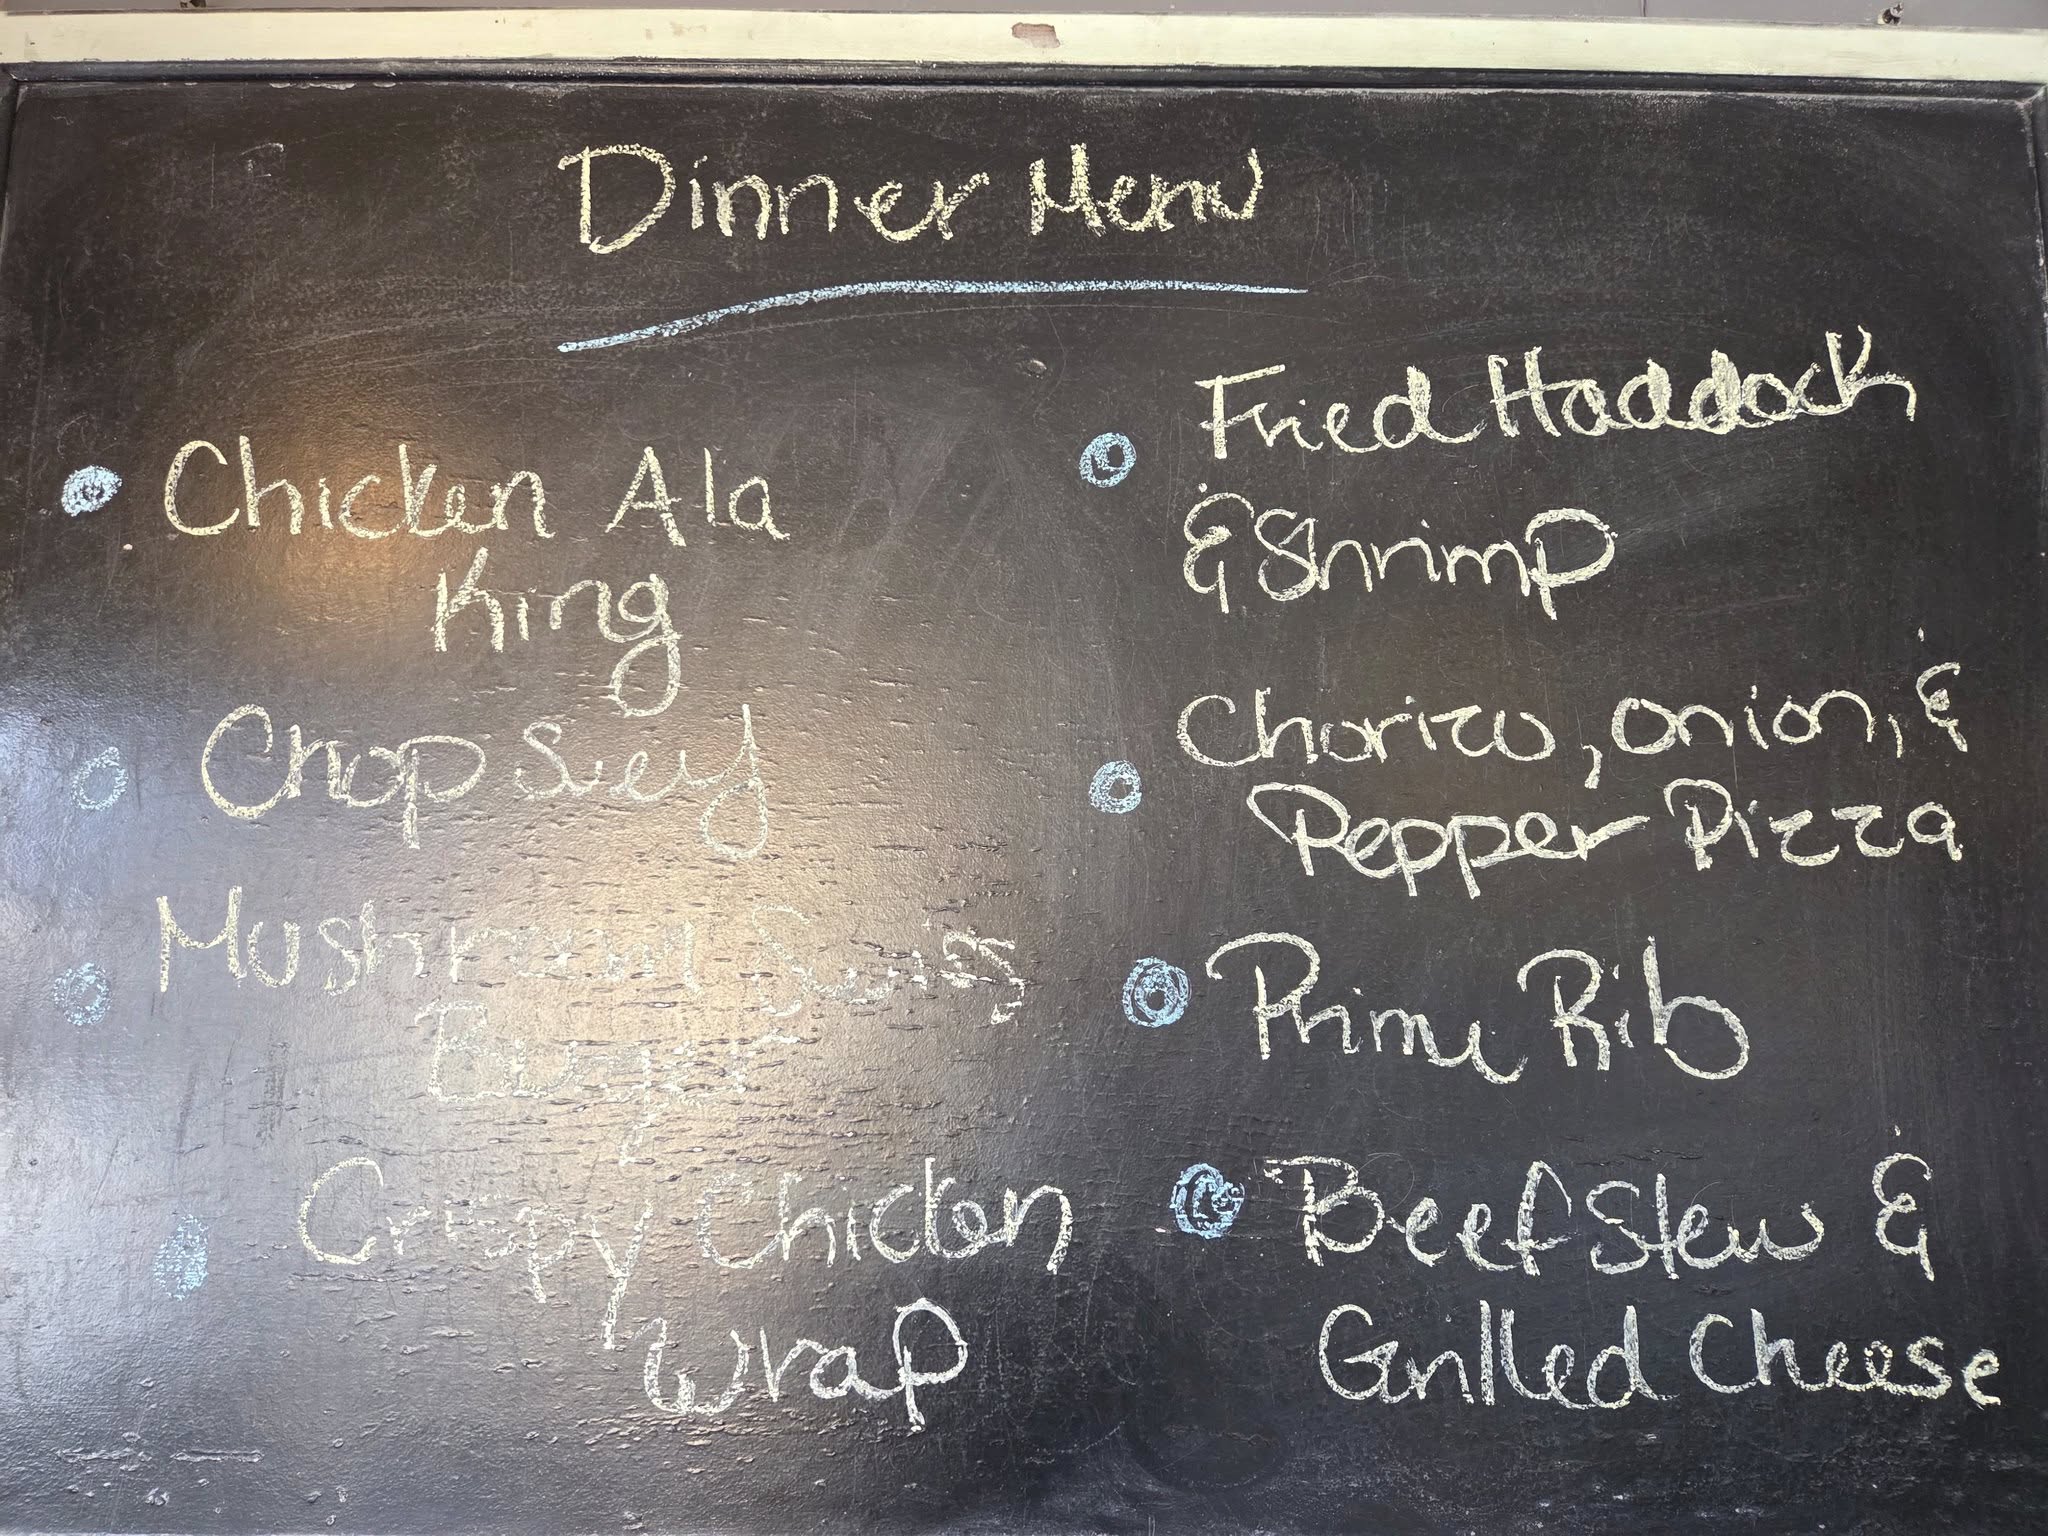 Dinner Menu
Chicken Ala
King
Chop Suey
Mushroom Swiss
Burger
Crispy Chicken
Wrap
Fried Haddock
& Shrimp
Chorizo, onion, &
Pepper Pizza
Prime Rib
Beef Stew &
Grilled Cheese